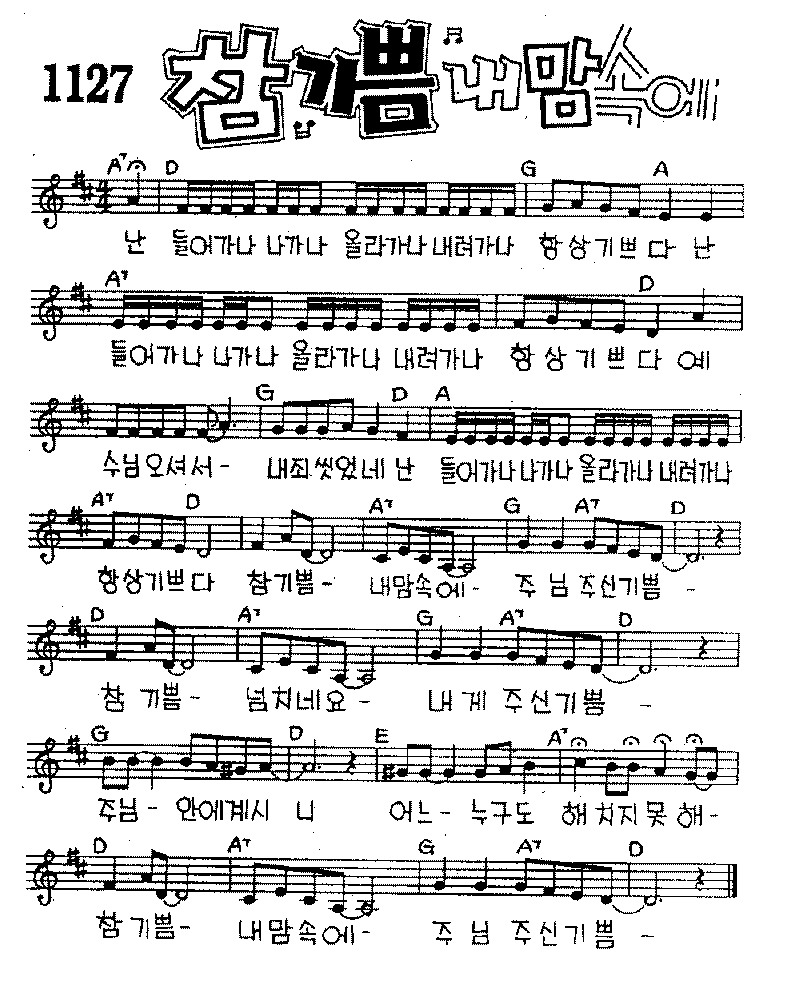 1127 참기쁨 내 맘속에
A7 D G A
난 들어가나 나가나 올라가나 내려가나 항상기쁘다 난
A7 D
들어가나 나가나 올라가나 내려가나 항상기쁘다 예
G D A
수님오셔서- 내죄씻었네 난 들어가나 나가나 올라가나 내려가나
A7 D A7 G A7 D
항상기쁘다 참기쁨- 내맘속에- 주님주신기쁨 -
D A7 G A7 D
참 기쁨- 넘치네요- 내게 주신기쁨 -
G D E A7
주님- 안에계시 니 어느- 누구도 해치지못해-
D A7 G A7 D
참 기쁨- 내맘속에- 주 님 주신기쁨 -